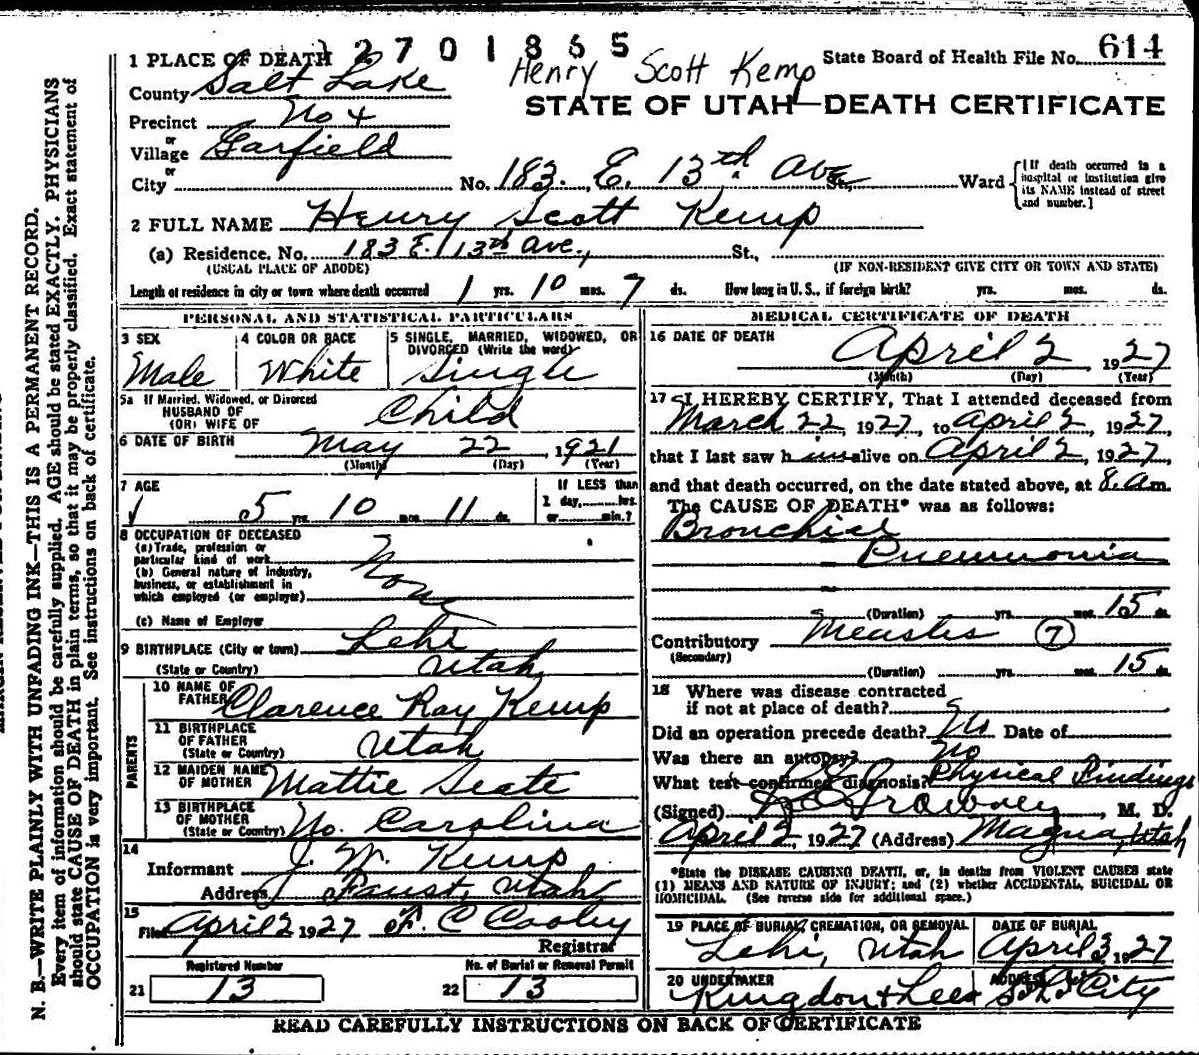 2701865
1 PLACE OF DEATH
Henry Scott Kemp
State Board of Health File No. 614
County Salt Lake
STATE OF UTAH—DEATH CERTIFICATE
Precinct No 4
or
Village Garfield
or
City No. 183 E. 13th Ave St. Ward
[If death occurred in a hospital or institution give its NAME instead of street and number.]
2 FULL NAME Henry Scott Kemp
(a) Residence. No. 183 E. 13th Ave., St.,
(USUAL PLACE OF ABODE) (IF NON-RESIDENT GIVE CITY OR TOWN AND STATE)
Length of residence in city or town where death occurred 1 yrs. 10 mos. 7 ds. How long in U. S., if foreign birth? yrs. mos. ds.
PERSONAL AND STATISTICAL PARTICULARS
3 SEX
Male
4 COLOR OR RACE
White
5 SINGLE, MARRIED, WIDOWED, OR
DIVORCED (Write the word)
Single
5a If Married, Widowed, or Divorced
HUSBAND OF
(OR) WIFE OF
Child
6 DATE OF BIRTH May 22, 1921
(Month) (Day) (Year)
7 AGE
5 yrs. 10 mos. 11 ds.
If LESS than
1 day, hrs.
or min.?
8 OCCUPATION OF DECEASED
(a) Trade, profession or
particular kind of work
(b) General nature of industry,
business, or establishment in
which employed (or employer)
None
(c) Name of Employer
9 BIRTHPLACE (City or town) Lehi
(State or Country) Utah
PARENTS
10 NAME OF
FATHER Clarence Ray Kemp
11 BIRTHPLACE
OF FATHER
(State or Country) Utah
12 MAIDEN NAME
OF MOTHER Mattie Seate
13 BIRTHPLACE
OF MOTHER
(State or Country) No. Carolina
14
Informant J. W. Kemp
Address Faust, Utah
15
Filed April 2 1927 F. C Cooley
Registrar
Registered Number
21 13
No. of Burial or Removal Permit
22 13
MEDICAL CERTIFICATE OF DEATH
16 DATE OF DEATH April 2 1927
(Month) (Day) (Year)
17 I HEREBY CERTIFY, That I attended deceased from
March 22, 1927, to April 2, 1927,
that I last saw him alive on April 2, 1927,
and that death occurred, on the date stated above, at 8 a.m.
The CAUSE OF DEATH* was as follows:
Bronchial
Pneumonia
(Duration) yrs. mos. 15 ds.
Contributory Measles 7
(Secondary)
(Duration) yrs. mos. 15 ds.
18 Where was disease contracted
if not at place of death?
Did an operation precede death? No Date of
Was there an autopsy? No
What test confirmed diagnosis? Physical Findings
(Signed) , M. D.
April 2, 1927 (Address) Magna, Utah
*State the DISEASE CAUSING DEATH, or, in deaths from VIOLENT CAUSES state
(1) MEANS AND NATURE OF INJURY; and (2) whether ACCIDENTAL, SUICIDAL OR
HOMICIDAL. (See reverse side for additional space.)
19 PLACE OF BURIAL, CREMATION, OR REMOVAL
Lehi, Utah
DATE OF BURIAL
April 3, 1927
20 UNDERTAKER
ADDRESS
S. L. City
READ CAREFULLY INSTRUCTIONS ON BACK OF CERTIFICATE
N. B.—WRITE PLAINLY WITH UNFADING INK—THIS IS A PERMANENT RECORD.
Every item of information should be carefully supplied. AGE should be stated EXACTLY. PHYSICIANS
should state CAUSE OF DEATH in plain terms, so that it may be properly classified. Exact statement of
OCCUPATION is very important. See instructions on back of certificate.